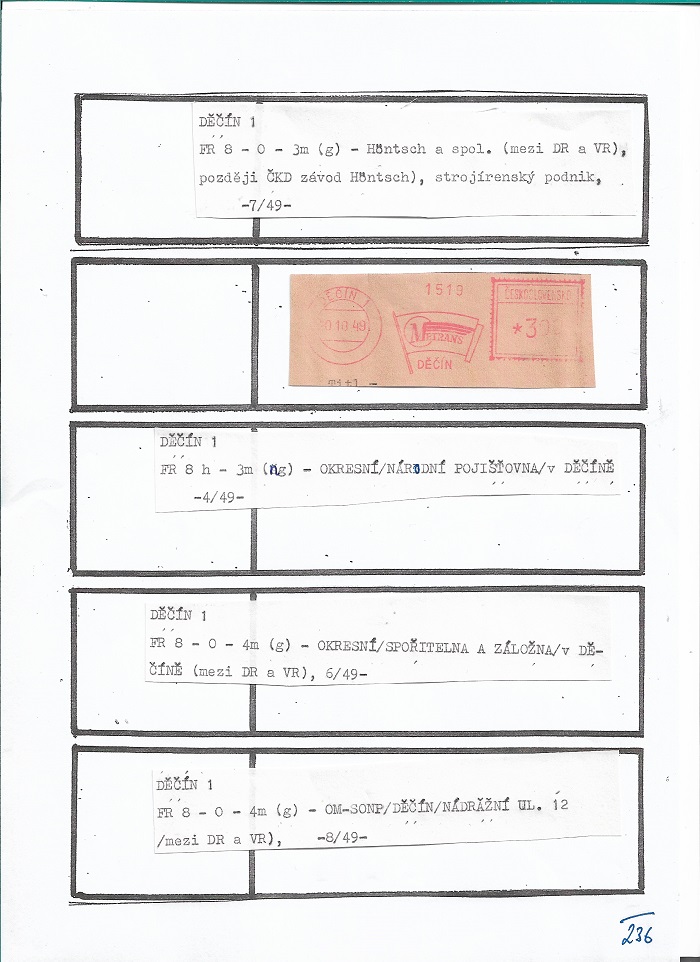 DĚČÍN 1
FR 8 - 0 - 3m (g) - Höntsch a spol. (mezi DR a VR),
později ČKD závod Höntsch), strojírenský podnik,
-7/49-
DĚČÍN 1
10 49
1519
METRANS
DĚČÍN
ČESKOSLOVENSKO
*30
DĚČÍN 1
FR 8 h - 3m (ng) - OKRESNÍ/NÁRODNÍ POJIŠŤOVNA/v DĚČÍNĚ
-4/49-
DĚČÍN 1
FR 8 - 0 - 4m (g) - OKRESNÍ/SPOŘITELNA A ZÁLOŽNA/v DĚ-
ČÍNĚ (mezi DR a VR), 6/49-
DĚČÍN 1
FR 8 - 0 - 4m (g) - OM-SONP/DĚČÍN/NÁDRÁŽNÍ UL. 12
/mezi DR a VR), -8/49-
236